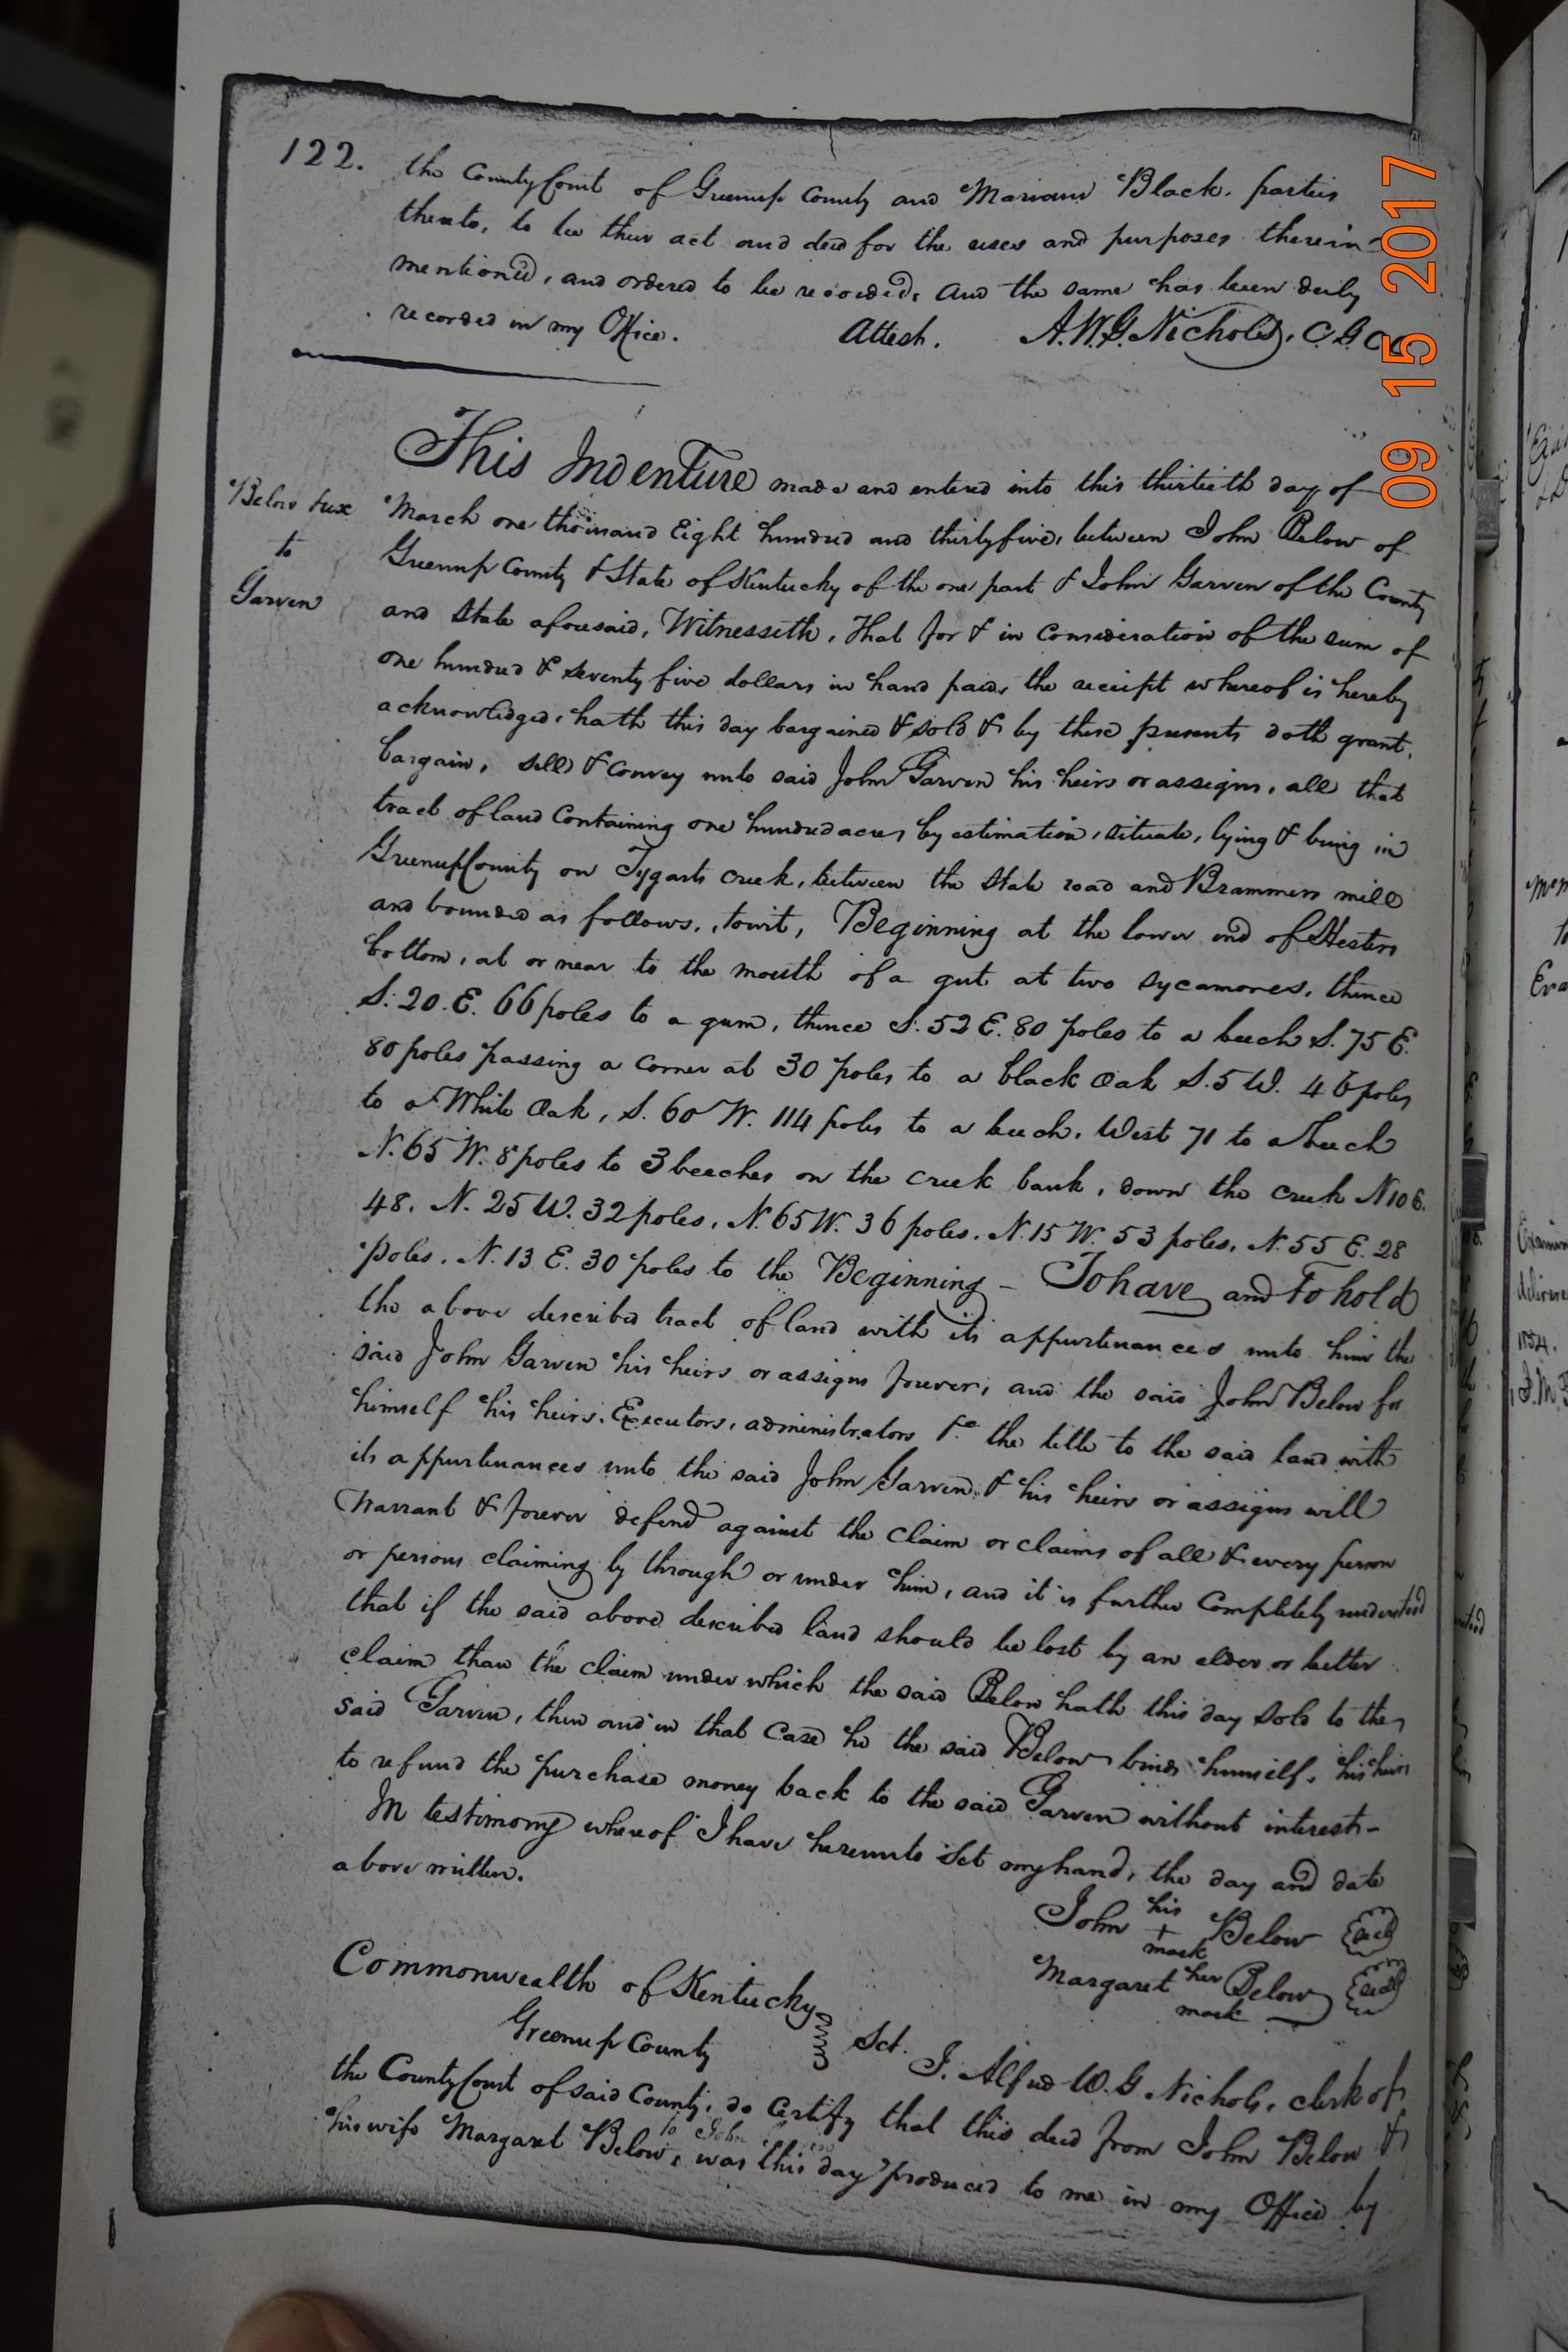 122.
the County Court of Greenup County and Mariam Black. parties
thereto, to be their act and deed for the uses and purposes therein-
mentioned, and ordered to be recorded, and the same has been duly
recorded in my Office. Attest. A.W.G. Nichols, C.G.C.C
This Indenture made and entered into this thirtieth day of
Below &ux
to
Garven
March one thousand Eight hundred and thirty five, between John Below of
Greenup County & State of Kentucky of the one part & John Garven of the County
and State aforesaid, Witnesseth, That for & in Consideration of the sum of
one hundred & seventy five dollars in hand paid, the receipt whereof is hereby
acknowledged, hath this day bargained & sold & by these presents doth grant,
bargain, sell & convey unto said John Garven his heirs or assigns, all that
tract of land Containing one hundred acres by estimation, situate, lying & being in
Greenup County on Tygarts creek, between the State road and Brammers mill
and bounded as follows, towit, Beginning at the lower end of Hesters
bottom, at or near to the mouth of a gut at two sycamores, thence
S. 20. E. 66 poles to a gum, thence S. 52 E. 80 poles to a beech S. 75 E.
80 poles passing a corner at 30 poles to a black Oak S. 5 W. 46 poles
to a White Oak, S. 60 W. 114 poles to a beech. West 71 to a beech
N. 65 W. 8 poles to 3 beeches on the creek bank, down the creek N 10 E.
48. N. 25 W. 32 poles, N. 65 W. 36 poles. N. 15 W. 53 poles, N. 55 E. 28
poles. N. 13 E. 30 poles to the Beginning - To have and To hold
the above described tract of land with its appurtenances unto him the
said John Garven his heirs or assigns forever, and the said John Below for
himself his heirs, Executors, administrators &c the title to the said land with
its appurtenances unto the said John Garven & his heirs or assigns will
Warrant & forever defend against the claim or claims of all & every person
or persons claiming by through or under him, and it is further Completely understood
that if the said above described land should be lost by an elder or better
claim than the claim under which the said Below hath this day sold to the
said Garven, then and in that Case he the said Below binds himself, his heirs
to refund the purchase money back to the said Garven without interest-
In testimony whereof I have hereunto set my hand, the day and date
above written.
John his + mark Below seal
Margaret her mark Below seal
Commonwealth of Kentucky
Greenup County Sct. I. Alfred W. G Nichols, clerk of
the County Court of said County, do Certify that this deed from John Below &
his wife Margaret Below, to John was this day produced to me in my Office by
09 15 2017